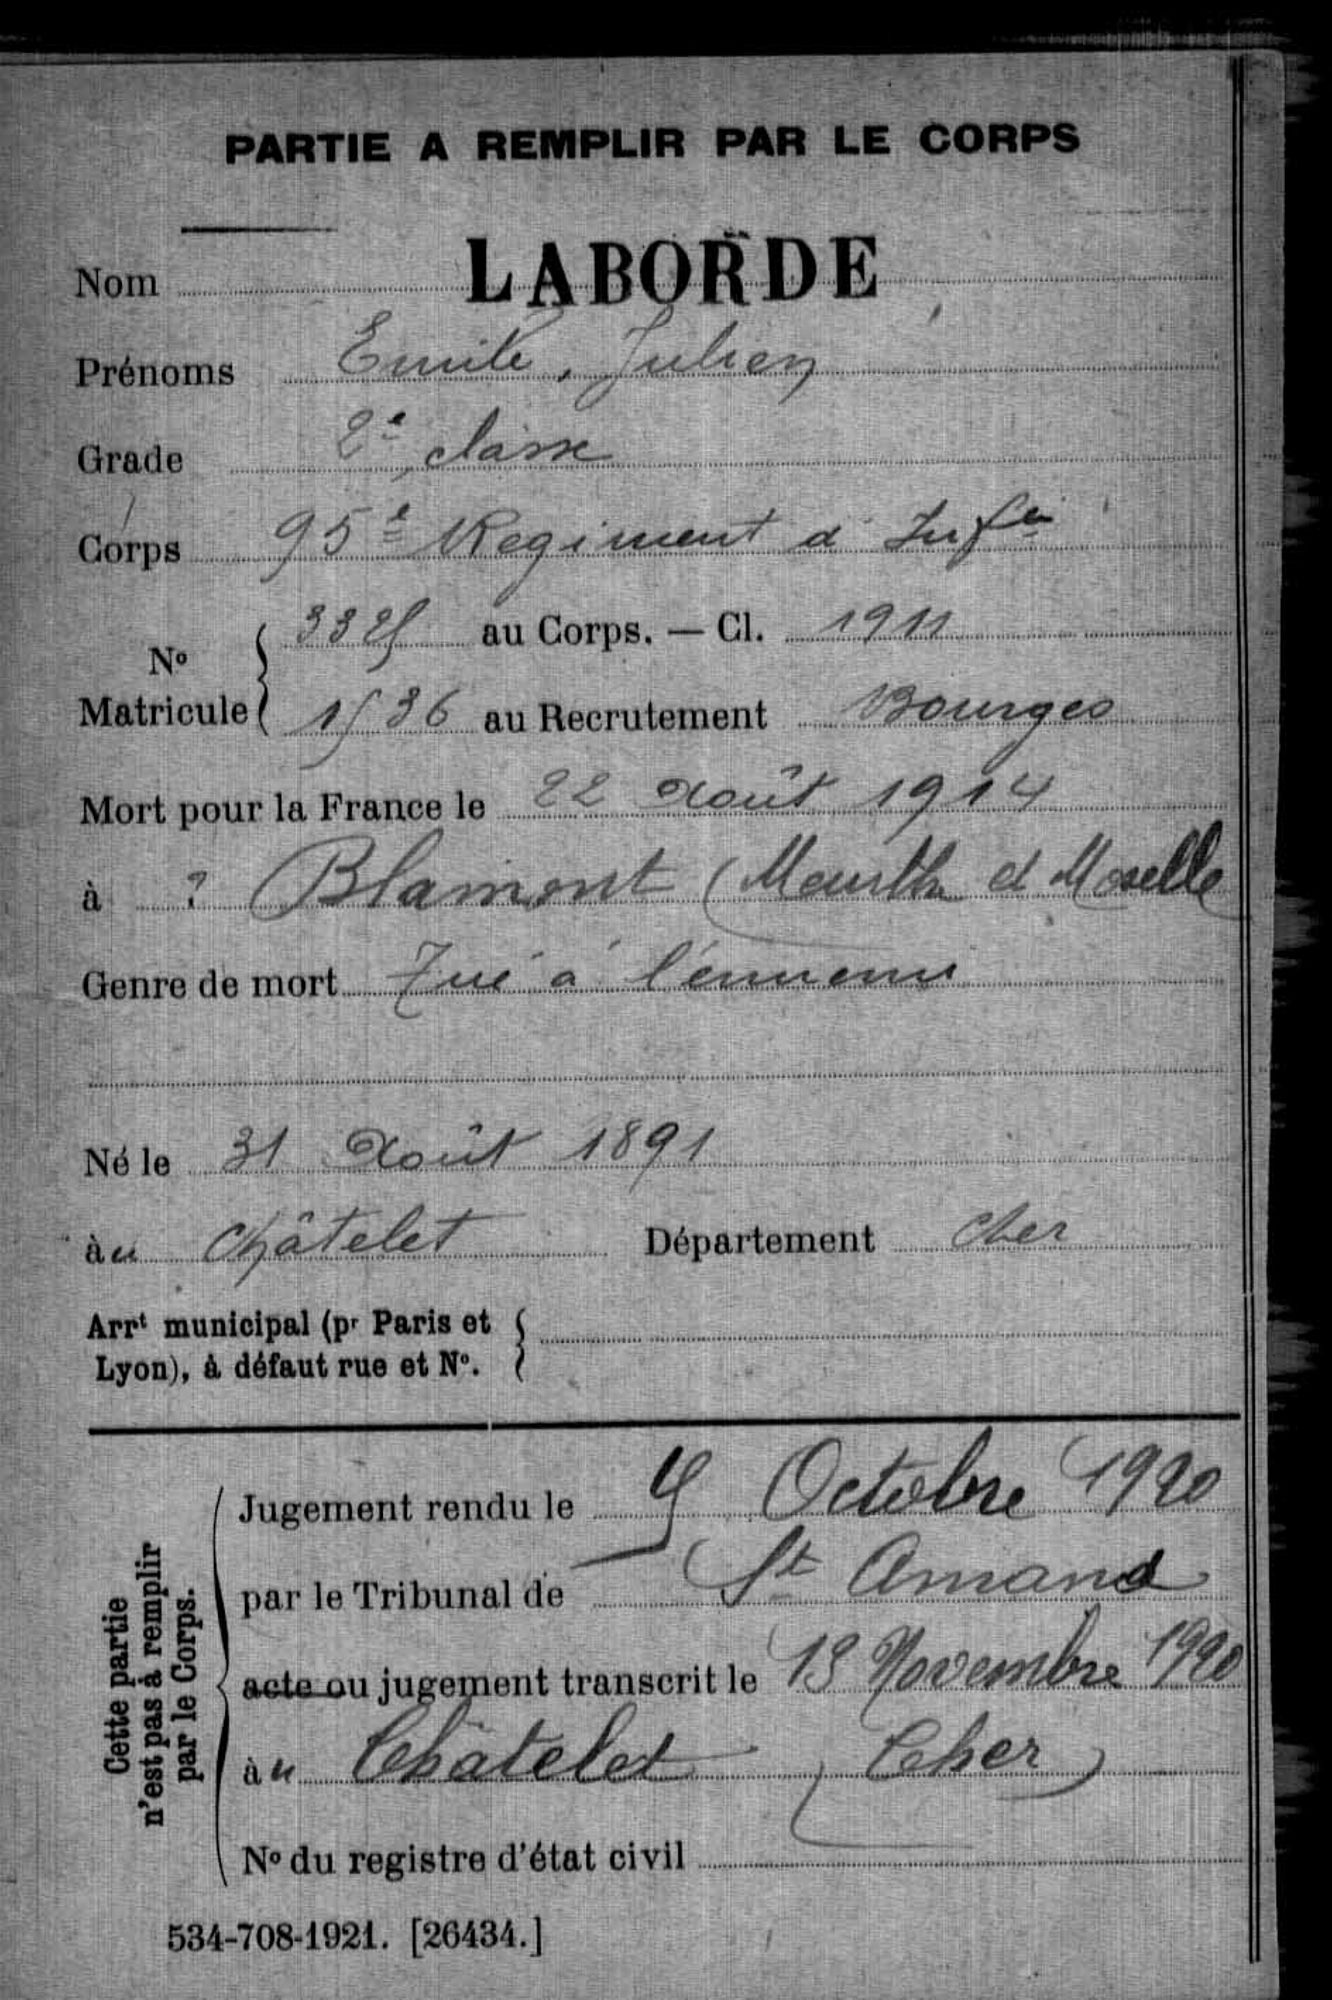 PARTIE A REMPLIR PAR LE CORPS
Nom LABORDE
Prénoms Emile, Julien
Grade 2e classe
Corps 95e Régiment d'Infie
No Matricule { 3325 au Corps. — Cl. 1911
1536 au Recrutement Bourges
Mort pour la France le 22 Août 1914
à ? Blamont (Meurthe et Moselle
Genre de mort Tué à l'ennemi
Né le 31 Août 1891
àu Châtelet Département Cher
Arrt municipal (pr Paris et
Lyon), à défaut rue et No. }
Cette partie
n'est pas à remplir
par le Corps.
Jugement rendu le 5 Octobre 1920
par le Tribunal de St Amand
acte ou jugement transcrit le 13 Novembre 1920
àu Châtelet (Cher)
No du registre d'état civil
534-708-1921. [26434.]